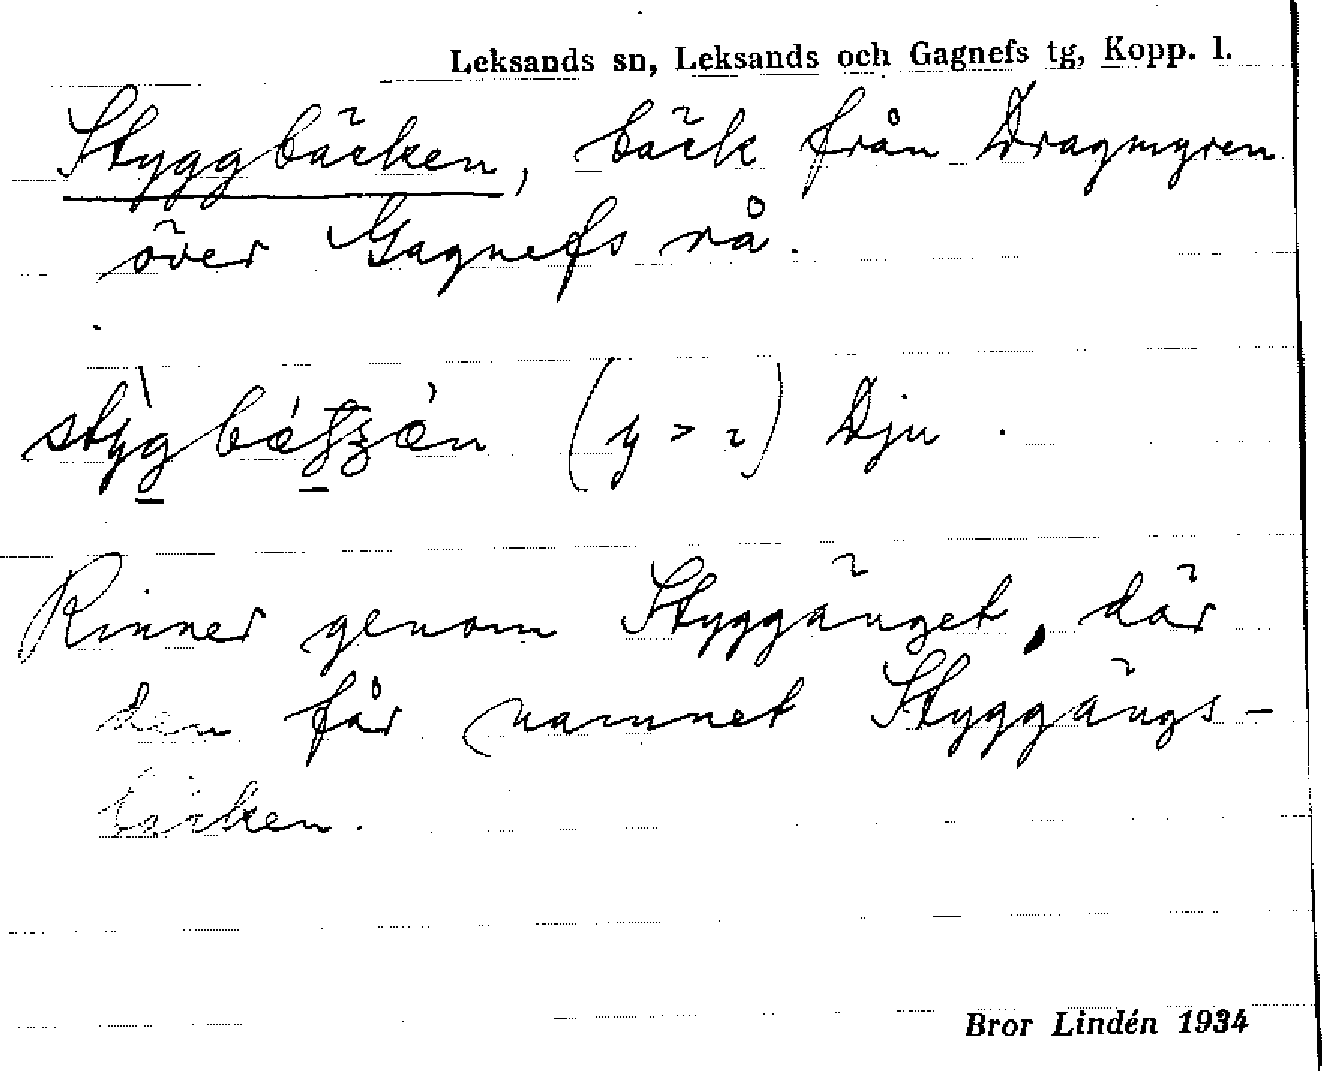 Leksands sn, Leksands och Gagnefs tg, Kopp. l.
Styggbäcken, bäck från Dragmyren
över Gagnefs rå.
(y > ı) Dju.
Rinner genom Styggänget, där
den får namnet Styggängs-
bäcken.
Bror Lindén 1934